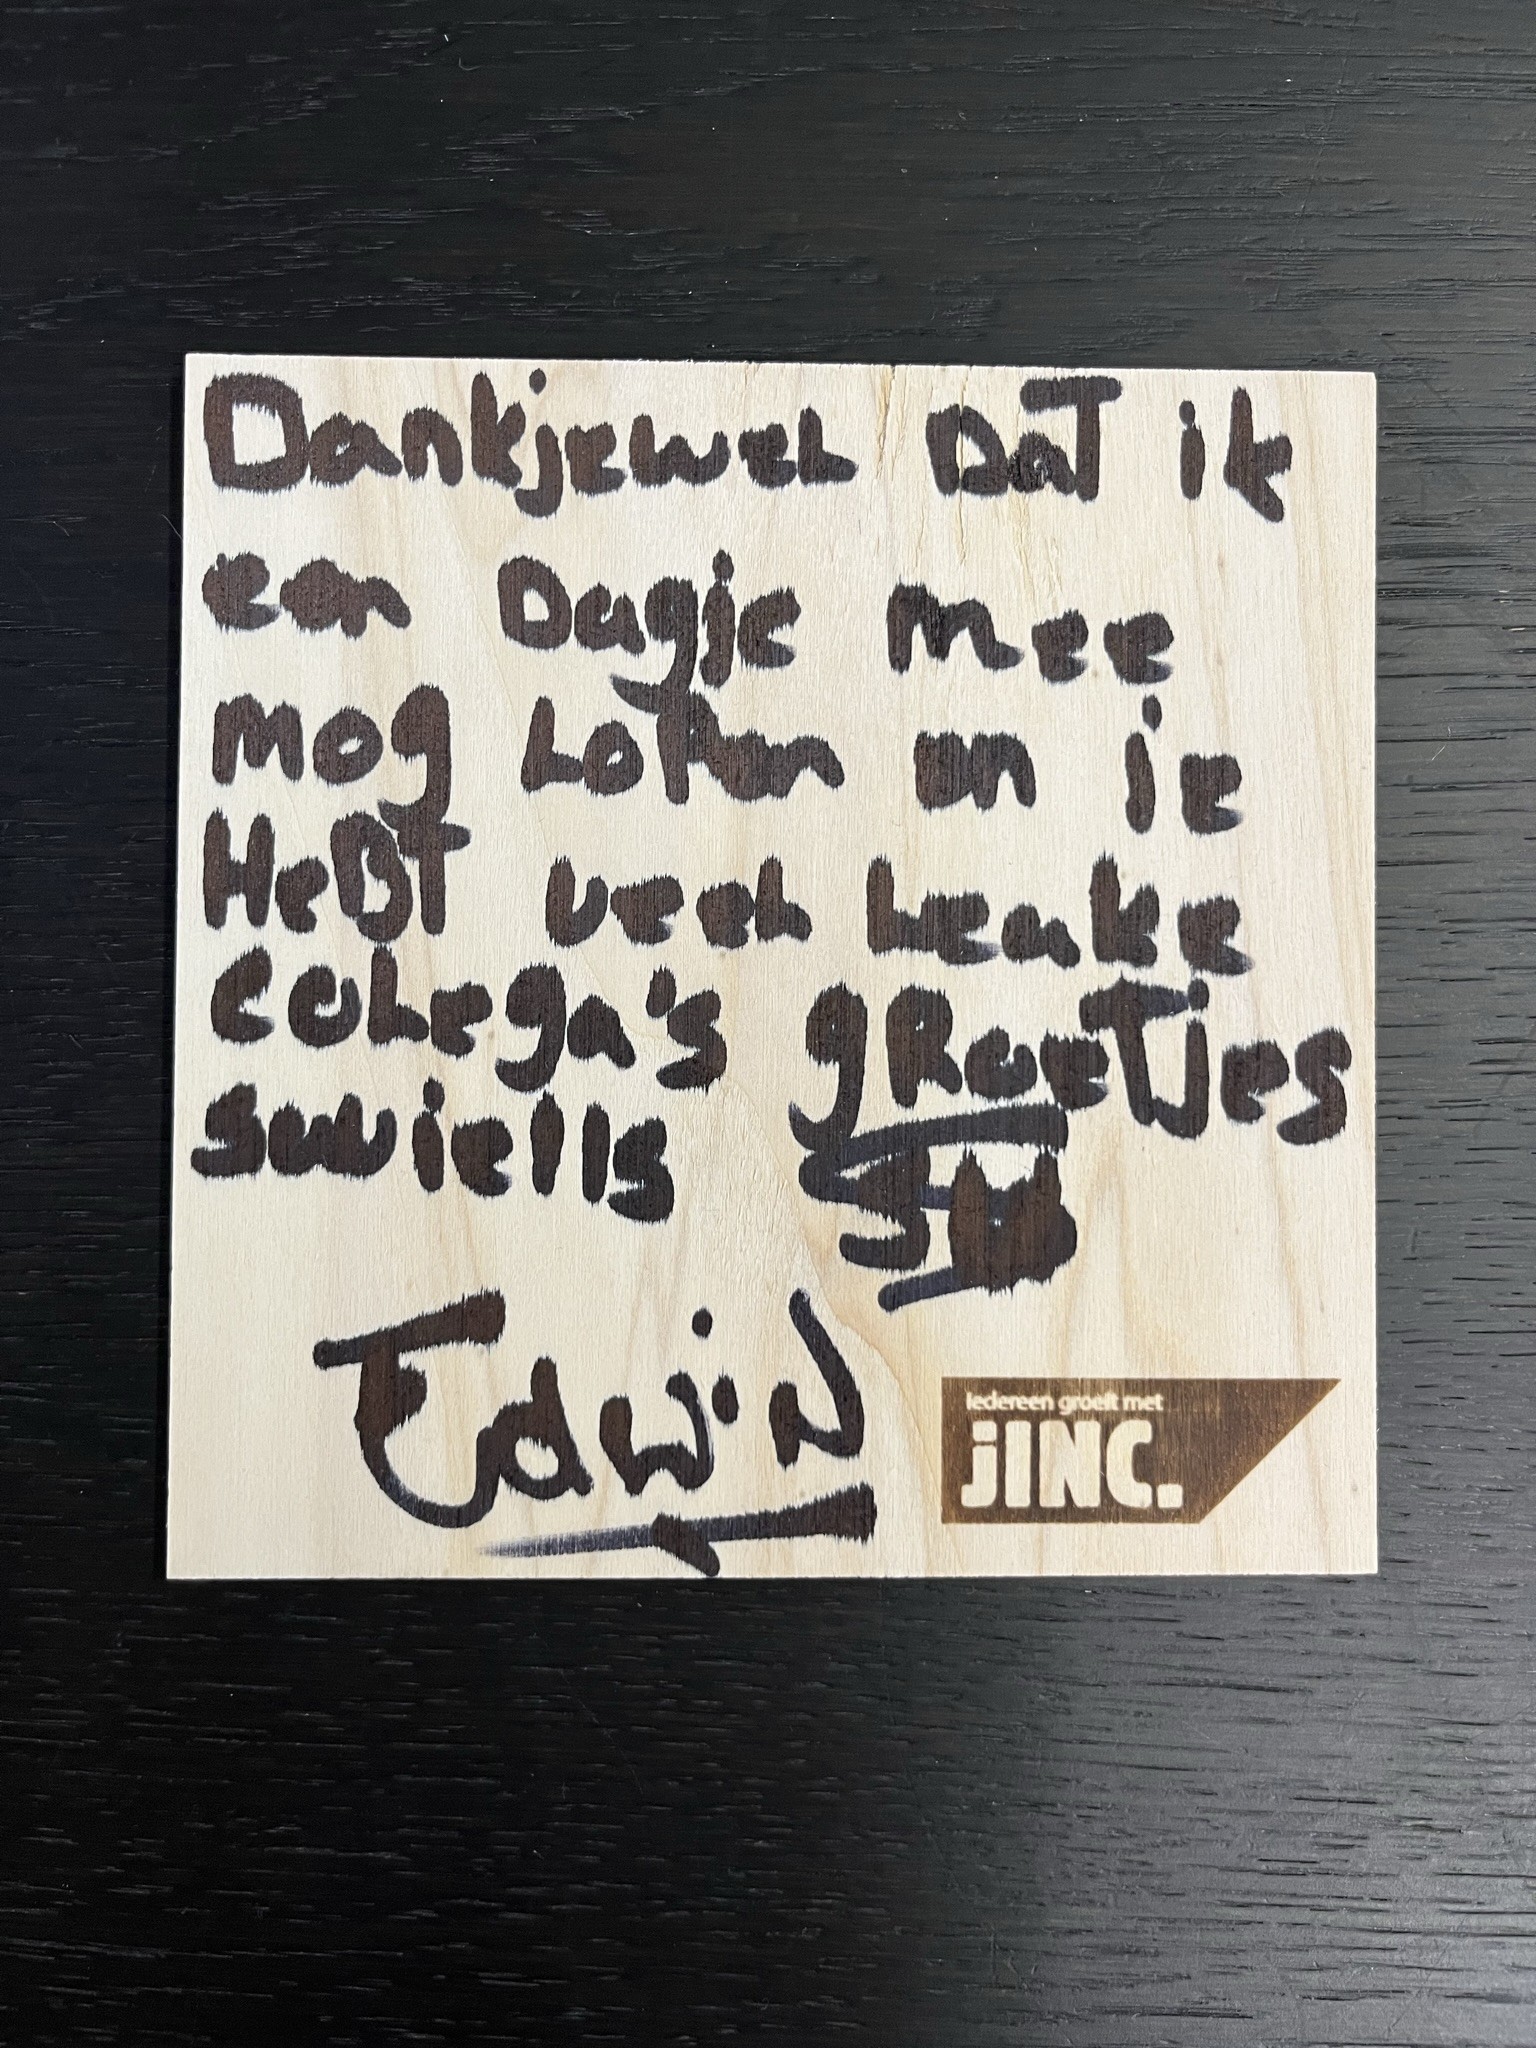 Dankjewel Dat ik
een Dagje mee
mog Lopen en je
HeBt veel Leuke
coLega's gRoetjes
Edwin
Iedereen groeit met
jINC.